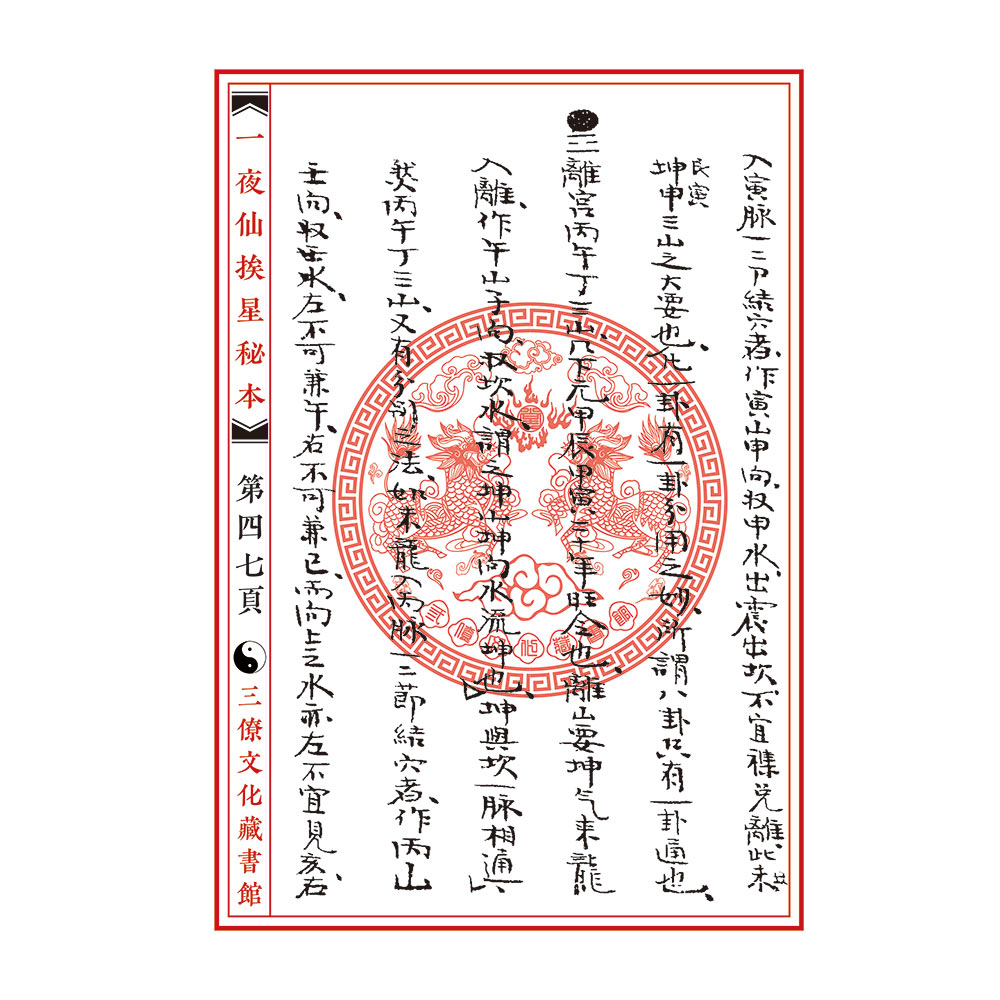 入寅脉一二节結穴者、作寅山申向、收甲水、出震出坎、不宜襍兌離、此未丑
艮寅坤申三山之大要也、化一卦有一卦分用之妙、所謂八卦只有一卦通也、
三離宮丙午丁三山、八下元甲辰甲寅二十年旺令也、離山要坤气来龍
入離、作午山子向、收坎水、謂之坤山坤向水流坤也、坤與坎一脉相通、
然丙午丁三山、又有分别之法、如来龍入丙脉一二節結穴者、作丙山
壬向、收壬水、左不可兼午、右不可兼巳、而向上之水亦左不宜見亥右、
一夜仙挨星秘本
第四七頁
三僚文化藏書館